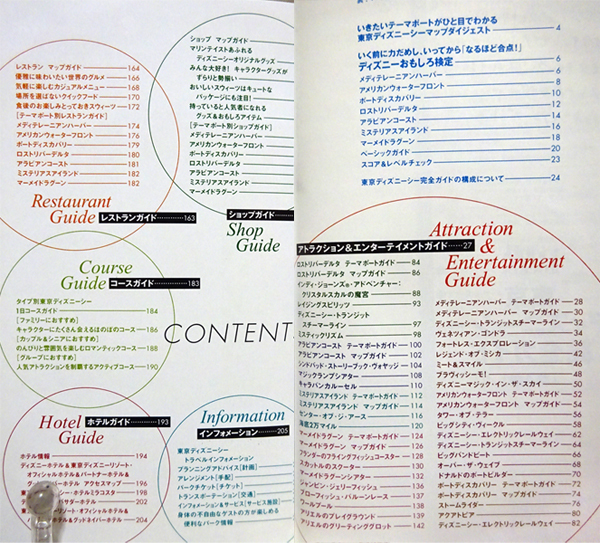 レストラン マップガイド 164
優雅に味わいたい世界のグルメ 166
気軽に楽しむカジュアルメニュー 168
場所を選ばないクイックフード 170
食後のお楽しみとっておきスウィーツ 172
[テーマポート別レストランガイド]
メディテレーニアンハーバー 174
アメリカンウォーターフロント 176
ポートディスカバリー 179
ロストリバーデルタ 180
アラビアンコースト 181
ミステリアスアイランド 182
マーメイドラグーン 182
Restaurant
Guide レストランガイド 163
ショップ マップガイド
マリンテイストあふれる
ディズニーシーオリジナルグッズ
みんな大好き! キャラクターグッズが
ずらりと勢揃い
おいしいスウィーツはキュートな
パッケージにも注目!
持っていると人気者になれる
グッズ&おもしろアイテム
[テーマポート別ショップガイド]
メディテレーニアンハーバー
アメリカンウォーターフロント
ポートディスカバリー
ロストリバーデルタ
アラビアンコースト
ミステリアスアイランド
マーメイドラグーン
ショップガイド
Shop
Guide
Course
Guide コースガイド 183
タイプ別東京ディズニーシー
1日コースガイド 184
[ファミリーにおすすめ]
キャラクターにたくさん会えるほのぼのコース 186
[カップル&シニアにおすすめ]
のんびりと雰囲気を楽しむロマンティックコース 188
[グループにおすすめ]
人気アトラクションを制覇するアクティブコース 190
CONTENT
Hotel
Guide ホテルガイド 193
ホテル情報 194
ディズニーホテル&東京ディズニーリゾート・
オフィシャルホテル&パートナーホテル&
ホテル アクセスマップ 196
ホテルミラコスタ 198
ホテル 202
リゾート・オフィシャルホテル&
ホテル&グッドネイバーホテル 204
Information
インフォメーション 205
東京ディズニーシー
トラベルインフォメーション
プランニングアドバイス[計画]
アレンジメント[手配]
パークチケット[チケット]
トランスポーテーション[交通]
インフォメーション&サービス[サービス施設]
身体の不自由なゲストの方が楽しめる
便利なパーク情報
いきたいテーマポートがひと目でわかる
東京ディズニーシーマップダイジェスト 4
いく前に力だめし、いってから「なるほど合点!」
ディズニーおもしろ検定 6
メディテレーニアンハーバー 6
アメリカンウォーターフロント 8
ポートディスカバリー 10
ロストリバーデルタ 12
アラビアンコースト 14
ミステリアスアイランド 16
マーメイドラグーン 18
ベーシックガイド 20
スコア&レベルチェック 23
東京ディズニーシー完全ガイドの構成について 24
Attraction
&
Entertainment
Guide
アトラクション&エンターテイメントガイド 27
ロストリバーデルタ テーマポートガイド 84
ロストリバーデルタ マップガイド 86
インディ・ジョーンズ®・アドベンチャー:
クリスタルスカルの魔宮 88
レイジングスピリッツ 93
ディズニーシー・トランジット
スチーマーライン 92
ミスティックリズム 98
アラビアンコースト テーマポートガイド 100
アラビアンコースト マップガイド 102
シンドバッド・ストーリーブック・ヴォヤッジ 104
マジックランプシアター 108
キャラバンカルーセル 110
ミステリアスアイランド テーマポートガイド 112
ミステリアスアイランド マップガイド 114
センター・オブ・ジ・アース 116
海底2万マイル 120
マーメイドラグーン テーマポートガイド 124
マーメイドラグーン マップガイド 126
フランダーのフライングフィッシュコースター 128
スカットルのスクーター 130
マーメイドラグーンシアター 132
ジャンピン・ジェリーフィッシュ 134
ブローフィッシュ・バルーンレース 136
ワールプール 138
アリエルのプレイグラウンド 139
アリエルのグリーティンググロット 142
メディテレーニアンハーバー テーマポートガイド 28
メディテレーニアンハーバー マップガイド 30
ディズニーシー・トランジットスチーマーライン 32
ヴェネツィアン・ゴンドラ 34
フォートレス・エクスプロレーション 36
レジェンド・オブ・ミカ 42
ミート&スマイル 46
ブラヴィッシーモ! 48
ディズニーマジック・イン・ザ・スカイ 50
アメリカンウォーターフロント テーマポートガイド 52
アメリカンウォーターフロント マップガイド 54
タワー・オブ・テラー 56
ビッグシティ・ヴィークル 60
ディズニーシー・エレクトリックレールウェイ 62
ディズニーシー・トランジットスチーマーライン 64
ビッグバンドビート 66
オーバー・ザ・ウェイブ 68
ドナルドのボートビルダー 70
ポートディスカバリー テーマポートガイド 72
ポートディスカバリー マップガイド 74
ストームライダー 76
アクアトピア 80
ディズニーシー・エレクトリックレールウェイ 82